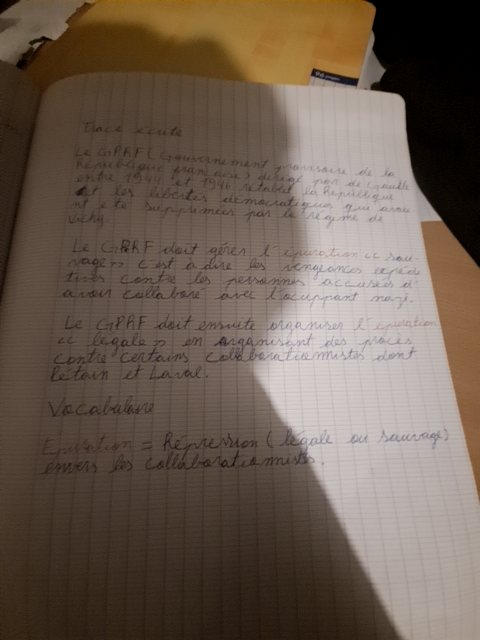 Trace écrite
Le GPRF (Gouvernement provisoire de la
République française) dirigé par de Gaulle
entre 1944 et 1946 rétablit la République
et les libertés démocratiques qui avaie
nt été supprimées par le régime de
Vichy.
Le GPRF doit gérer l'épuration « sau-
vage » c'est à dire les vengeances expédi
tives contre les personnes accusées d'
avoir collaboré avec l'occupant nazi.
Le GPRF doit ensuite organiser l'épuration
« légale » en organisant des procès
contre certains collaborationnistes dont
Pétain et Laval.
Vocabulaire
Epuration = Répression (légale ou sauvage)
envers les collaborationnistes.